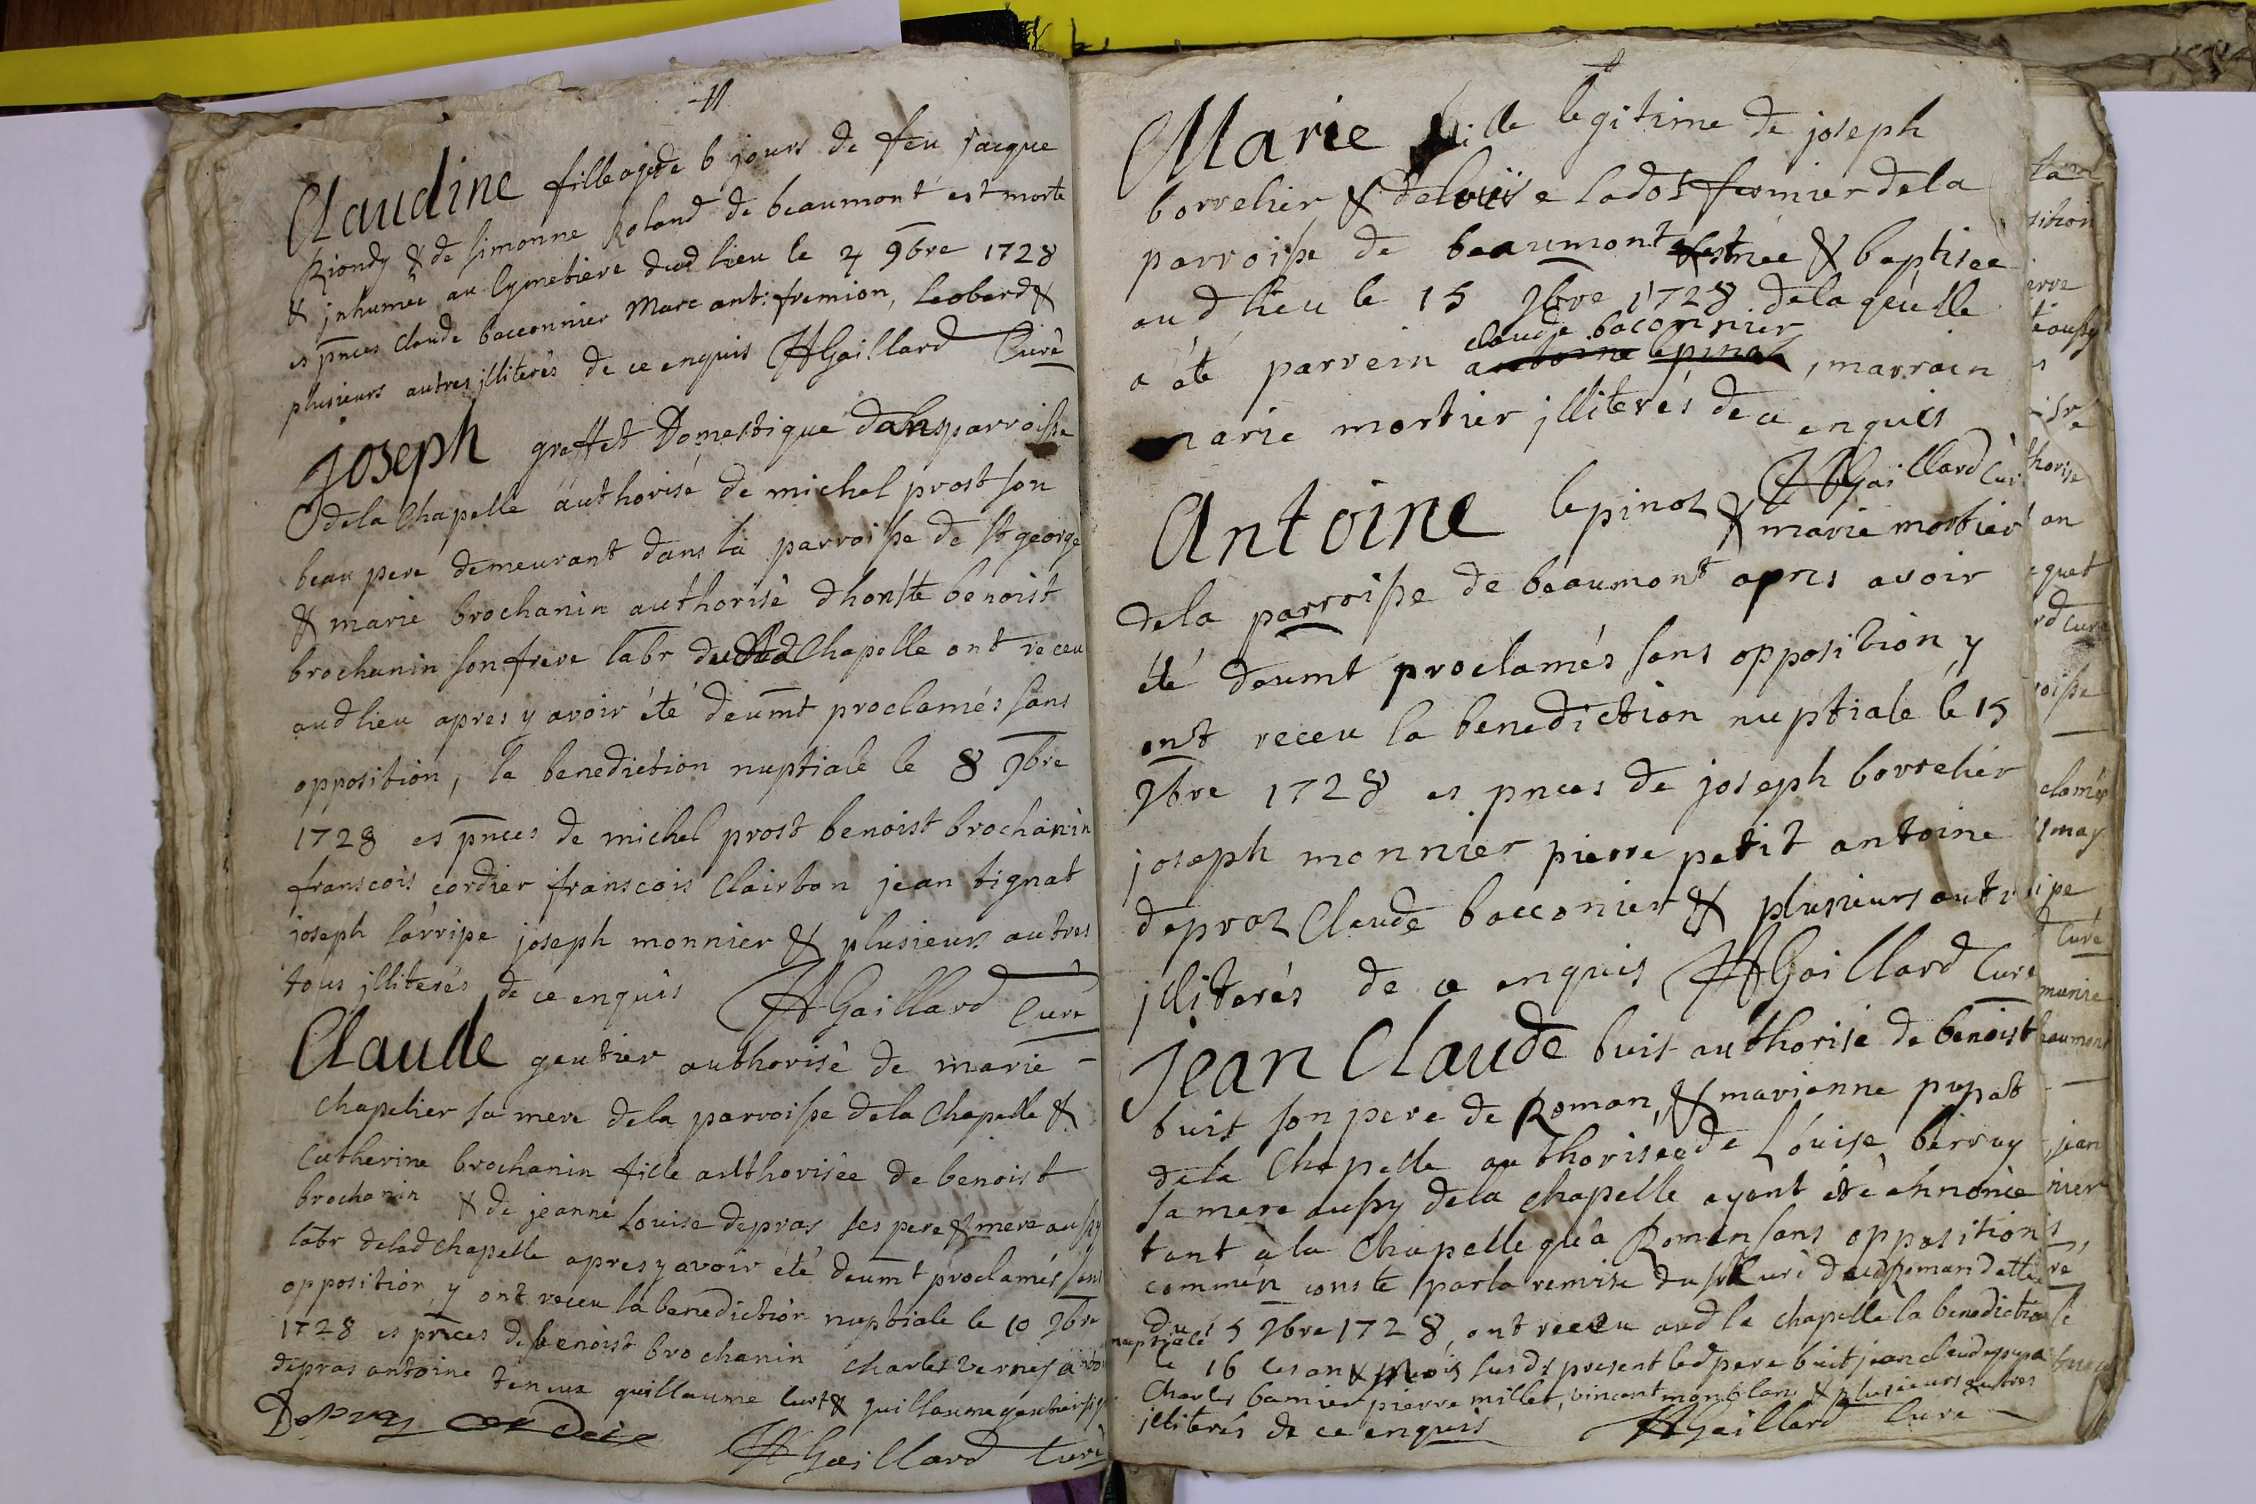 11
Claudine fille agéede 6 jours de feu jacque
Riondy & de simonne Roland de beaumont est morte
& jnhumée au Cymetiere dud lieu le 4 9bre 1728
es pnces claude bacconnier Marc ant: fremion, Leobard &
plusieurs autres jlliterés de ce enquis HGaillard Curé
Joseph graffet Domestique dans parroisse
dela Chapelle authorisé de michel prost son
beau pere demeurant dans la parroisse de st george
& marie brochanin authorisé dhonste benoist
brochanin son frere labr dudt Chapelle ont receu
aud lieu apres y avoir été deumt proclamés sans
opposition, la benediction nuptiale le 8 9bre
1728 es pnces de michel prost benoist brochanin
franscois cordier franscois Clairton jean tignat
joseph larripe joseph monnier & plusieurs autres
tous jlliterés de ce enquis HGaillard Curé
Claude gautier authorisé de marie
chapelier sa mere dela parroisse dela Chapelle &
Catherine brochanin fille authorisée de benoist
brochanin & de jeanne Louise depras ses pere & mere aussy
labr delad chapelle apres y avoir été deumt proclamés sans
opposition, y ont receu la benediction nuptiale le 10 9bre
1728 es pnces de benoist brochanin Charles vernis
depras antoine guillaume curt & guillaume gautier
Depras HGaillard Curé
Marie fille legitime de joseph
borrelier & de louise ladot fermier dela
parroisse de beaumont est née & baptisée
aud lieu le 15 9bre 1728 dela quelle
claude baconnier
a été parrein antoine lepinoz, marrain
marie mortier jlliterés de ce enquis
HGaillard Curé
Antoine lepinoz & marie mortier
dela parroisse de beaumont apres avoir
été deumt proclamés sans opposition y
ont receu la benediction nuptiale le 15
9bre 1728 es pnces de joseph borrelier
joseph monnier pierre petit antoine
deproz Claude bacconier & plusieurs autr
jlliterés de ce enquis HGaillard Curé
Jean Claude buit authorisé de benoist
buit son pere de Roman, & marianne pupat
dela Chapelle authoriséede Louise berruy
sa mere aussy dela chapelle ayant été annoncé
tant à la Chapelle qu'a Roman sans oppositions
comme conste par la remise du sr Curé dud Roman dattée
du 15 9bre 1728, ont receu aud la chapelle la benediction
nuptiale le 16 les an & mois susdt present led pere buit jean claude pupa
Charles barnier pierre millet, vincent montblanc & plusieurs autres
jlliterés de ce enquis HGaillard Curé